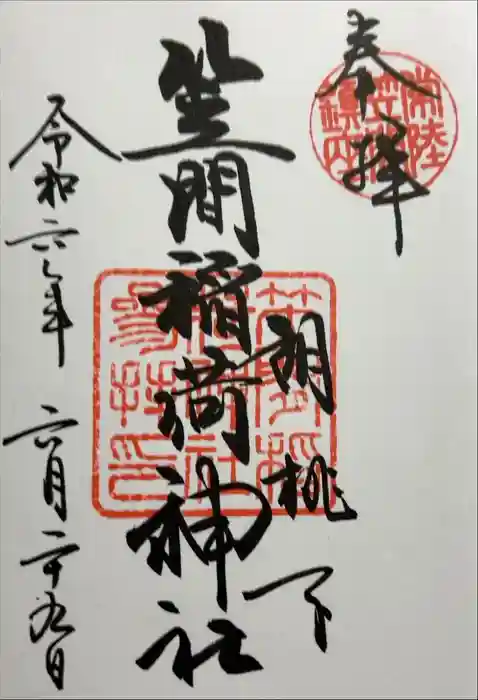 奉拝
常陸
笠間
鎮座
胡桃下
笠間稲荷神社
令和六年 六月二十九日